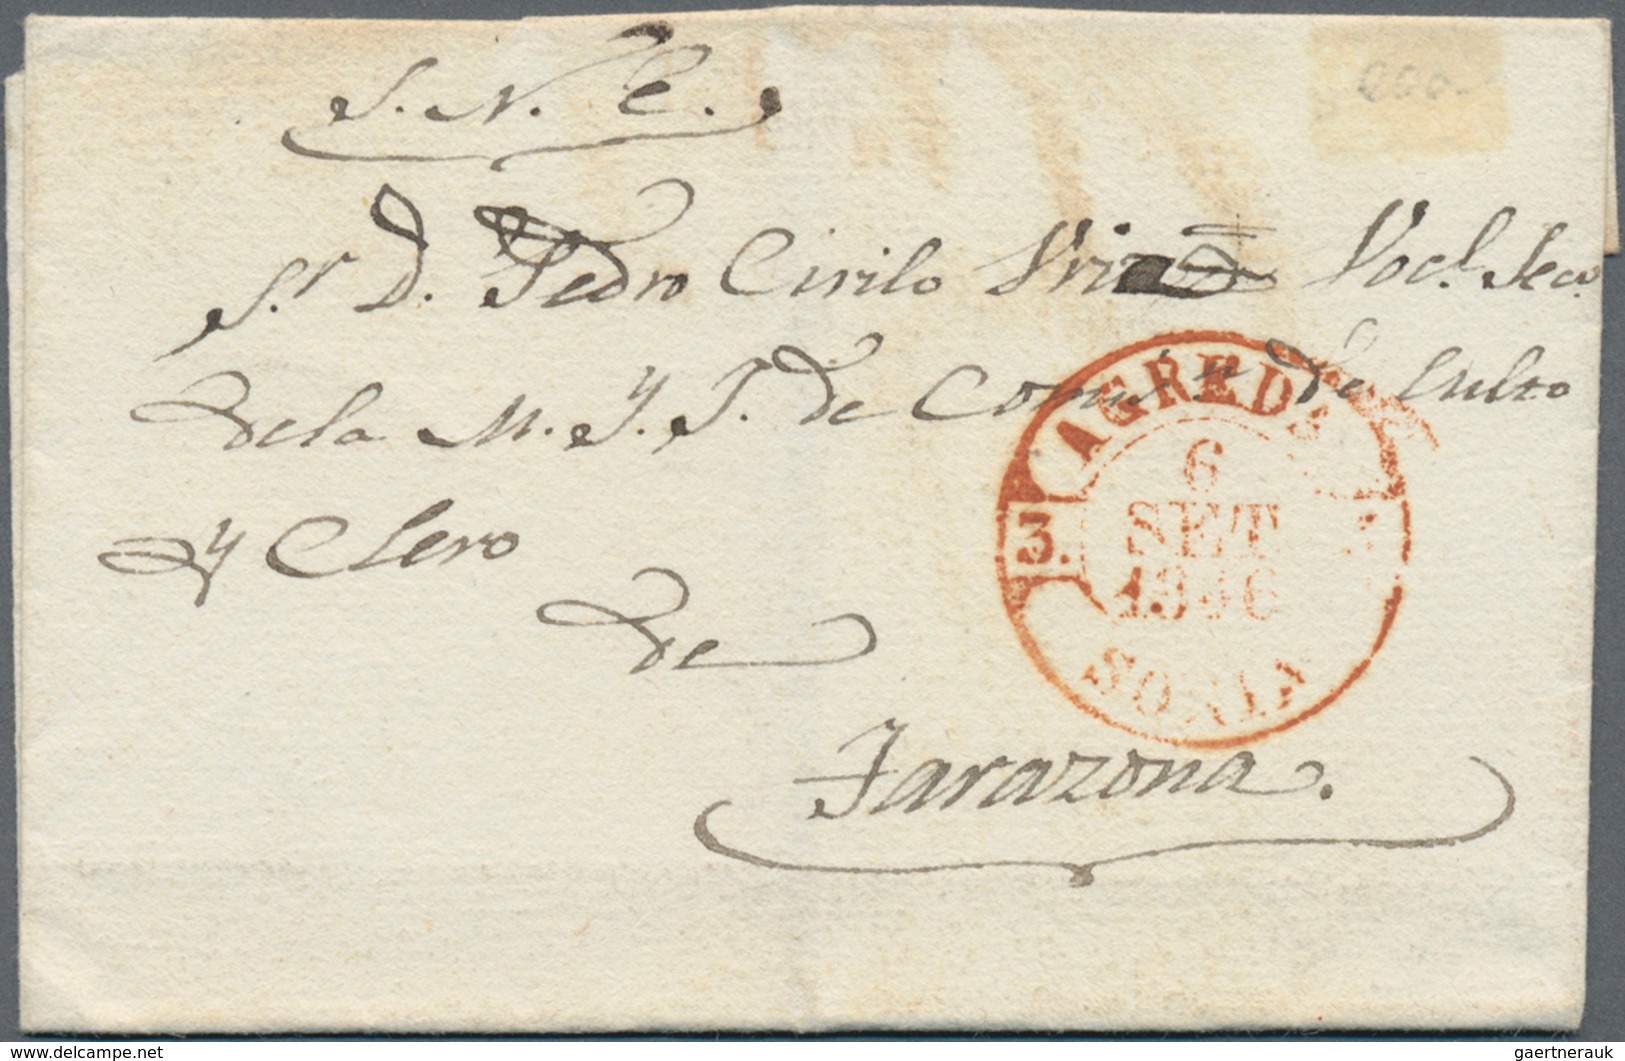 S. N. C.
200.-
Sr. D. Pedro Cirilo Vocl. Seco.
de la M. Y. J. de Comisn. de Culto
y Clero
de
Tarazona.
AGREDA
6
3.
SET
1846
SORIA
www.delcampe.net
gaertnerauk